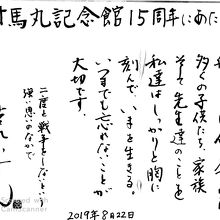 対馬丸記念館15周年にあた
多くの子供たち、家族
そして先生達のことを
私達はしっかりと胸に
刻んで、いまを生きる。
いつまでも忘れないことが
大切です。
二度と戦争をしないという
強い思いのなかで
2019年8月22日
CamScanner